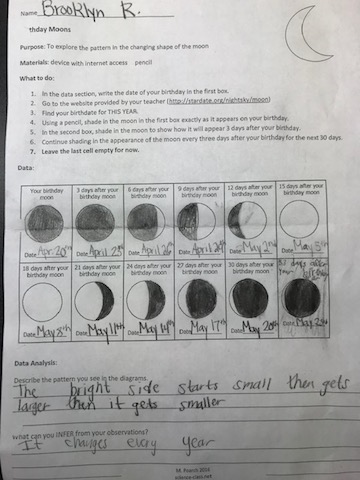 Name Brooklyn R.
thday Moons
Purpose: To explore the pattern in the changing shape of the moon
Materials: device with internet access pencil
What to do:
1. In the data section, write the date of your birthday in the first box.
2. Go to the website provided by your teacher (http://stardate.org/nightsky/moon)
3. Find your birthdate for THIS YEAR.
4. Using a pencil, shade in the moon in the first box exactly as it appears on your birthday.
5. In the second box, shade in the moon to show how it will appear 3 days after your birthday.
6. Continue shading in the appearance of the moon every three days after your birthday for the next 30 days.
7. Leave the last cell empty for now.
Data:
Your birthday moon
3 days after your birthday moon
6 days after your birthday moon
9 days after your birthday moon
12 days after your birthday moon
15 days after your birthday moon
Date Apr. 20th
Date April 23rd
Date April 26th
Date April 29th
Date May 2nd
Date May 5th
18 days after your birthday moon
21 days after your birthday moon
24 days after your birthday moon
27 days after your birthday moon
30 days after your birthday moon
days after your birthday
Date May 8th
Date May 11th
Date May 14th
Date May 17th
Date May 20th
Date May
Data Analysis:
Describe the pattern you see in the diagrams.
The bright side starts small then gets
larger then it gets smaller
What can you INFER from your observations?
It changes every year
M. Poarch 2019
science-class.net